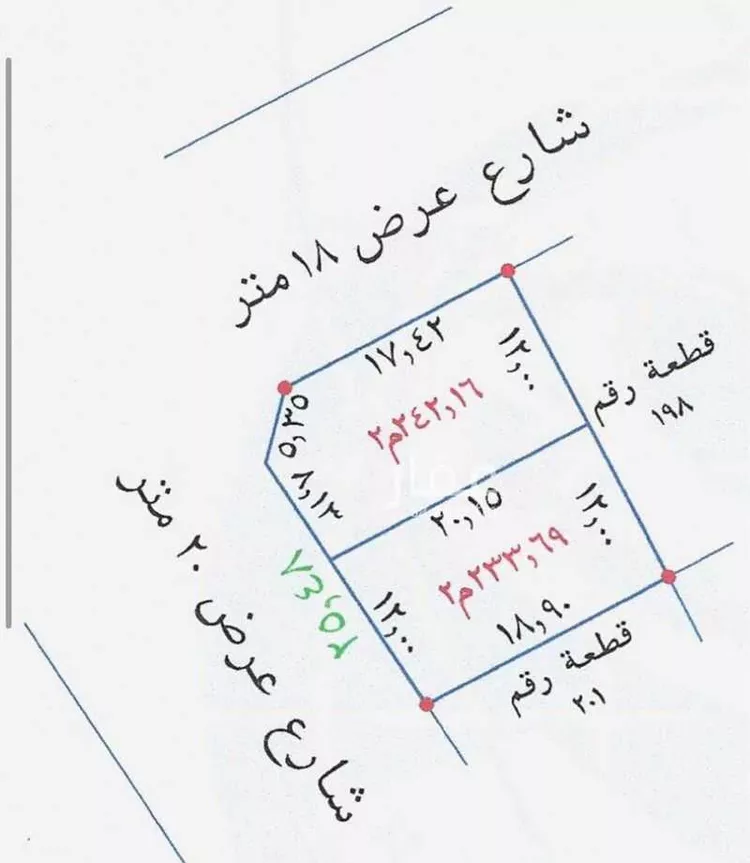 شارع عرض ١٨ متر
١٧,٤٢
١٢,٠٠
قطعة رقم
١٩٨
٥,٣٥
٢٤٢,١٦م٢
٨,١٣
عقار
٢٠,١٥
١٢,٠٠
٢٣٣,٦٩م٢
١٢,٠٠
١٨,٩٠
قطعة رقم
٢٠١
شارع عرض ٢٠ متر